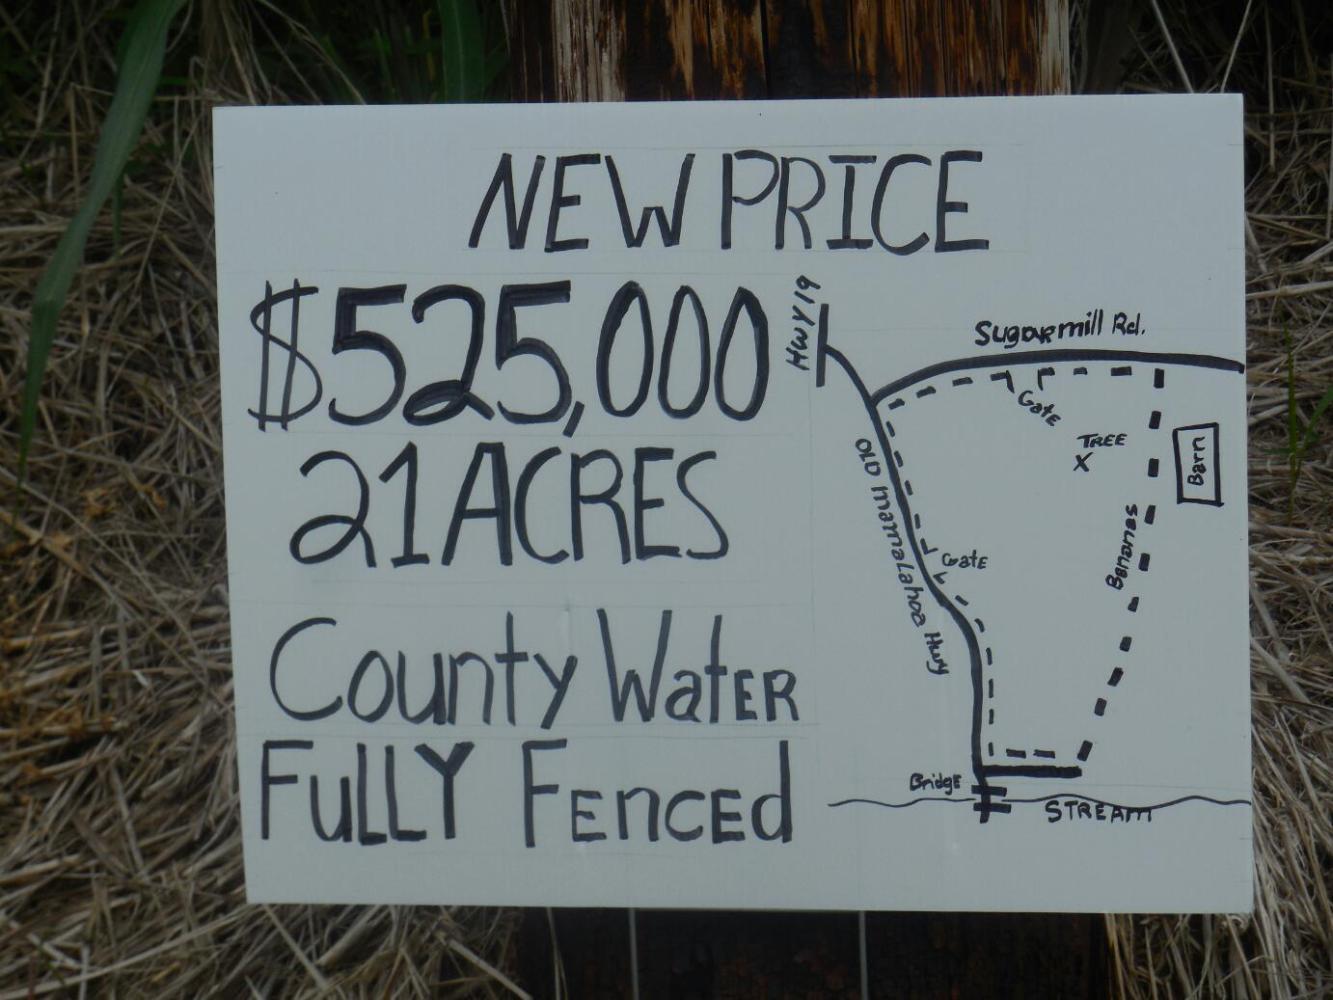 NEW PRICE
$525,000
21 ACRES
County Water
Fully Fenced
HWY 19
Sugarmill Rd.
Gate
TREE
X
Barn
Old mamalahoa Hwy
Gate
Bananas
Bridge
STREAM